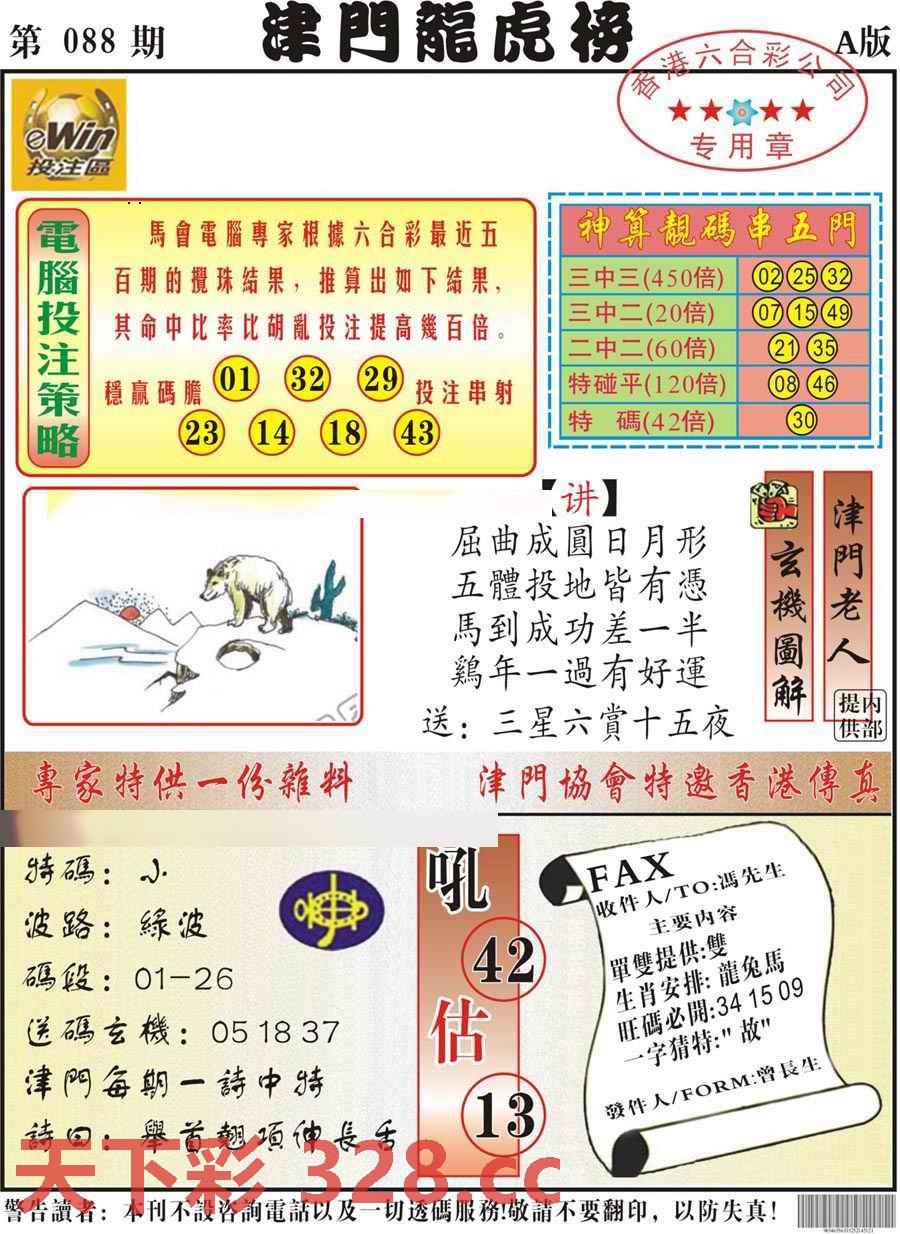 第 088 期
津門龍虎榜
A版
香港六合彩公司
专用章
eWin
投注區
電腦投注策略
馬會電腦專家根據六合彩最近五
百期的攪珠結果，推算出如下結果，
其命中比率比胡亂投注提高幾百倍。
穩贏碼膽 01 32 29 投注串射
23 14 18 43
神算靚碼串五門
三中三(450倍) 02 25 32
三中二(20倍) 07 15 49
二中二(60倍) 21 35
特碰平(120倍) 08 46
特 碼(42倍) 30
【讲】
屈曲成圓日月形
五體投地皆有憑
馬到成功差一半
鷄年一過有好運
送：三星六賞十五夜
玄機圖解
津門老人
提内
供部
專家特供一份雜料
津門協會特邀香港傳真
特碼：小
波路：綠波
碼段：01-26
送碼玄機：05 18 37
津門每期一詩中特
詩曰：舉首翹項伸長舌
吼
42
估
13
FAX
收件人/TO:馮先生
主要内容
單雙提供:雙
生肖安排: 龍兔馬
旺碼必開:34 15 09
一字猜特:" 故"
發件人/FORM:曾長生
天下彩 328.cc
警告讀者：本刊不設咨詢電話以及一切透碼服務!敬請不要翻印，以防失真!